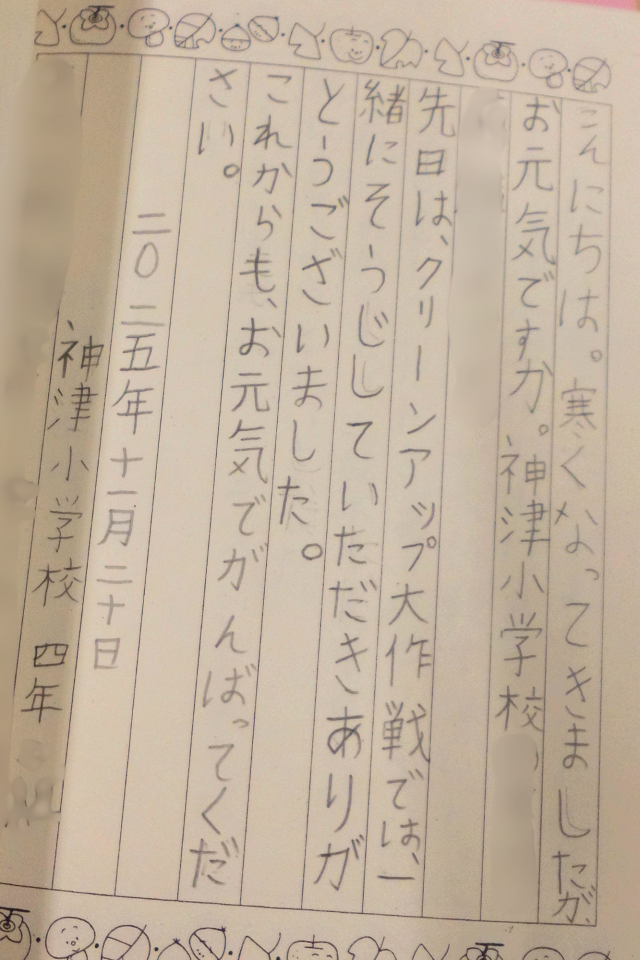 こんにちは。寒くなってきましたが、
お元気ですか。神津小学校
先日は、クリーンアップ大作戦では、一
緒にそうじしていただきありが
とうございました。
これからも、お元気でがんばってくだ
さい。
二〇二五年十一月二十日
神津小学校 四年